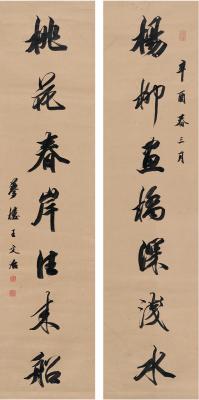 楊柳畫橋深淺水
辛酉春三月
桃花春岸往來船
夢樓王文治